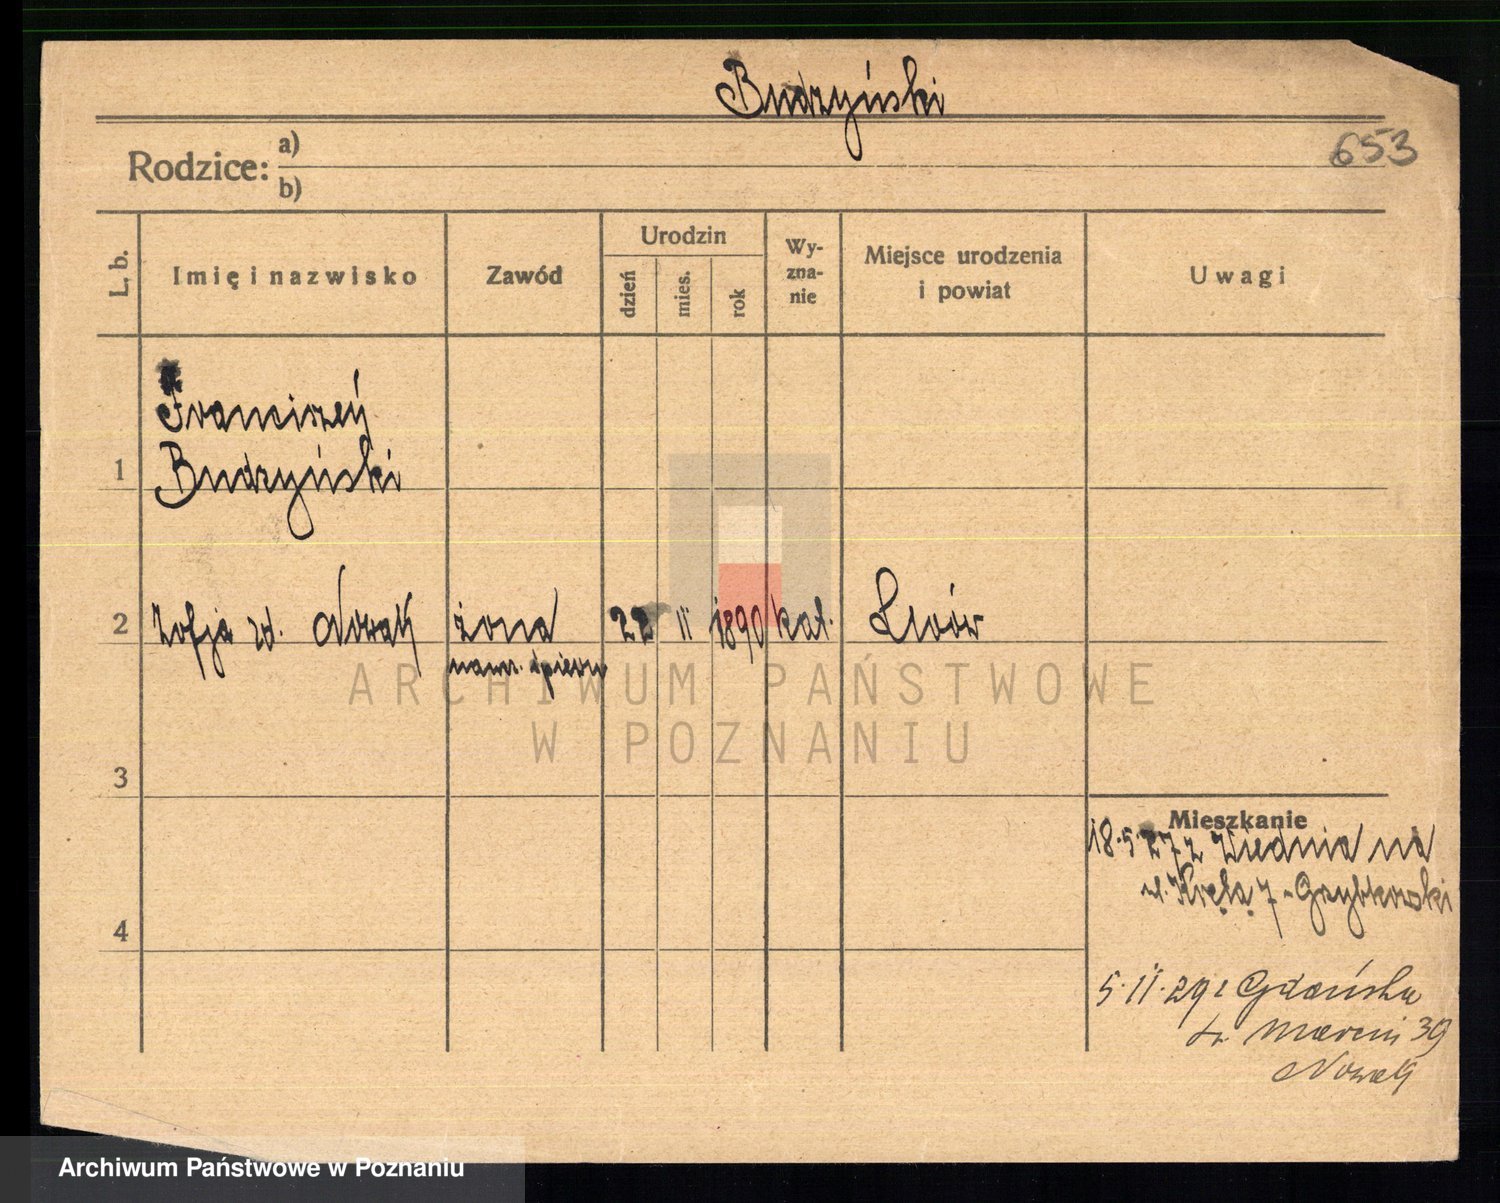 Budzyński
653
Rodzice: a)
b)
L. b.
Imię i nazwisko
Zawód
Urodzin
dzień
mies.
rok
Wy-
zna-
nie
Miejsce urodzenia
i powiat
Uwagi
Franciszek
1 Budzyński
2 Zofja zd. Nowak żona 22 II 1890 kat. Lwów
naucz. śpiewu
ARCHIWUM PAŃSTWOWE
W POZNANIU
3
Mieszkanie
18.5.27 z Wiednia na
ul. Kręta 7 - Grzybkowski
4
5.11.29 z Gdańska
św. Marcin 39
Nowak
Archiwum Państwowe w Poznaniu